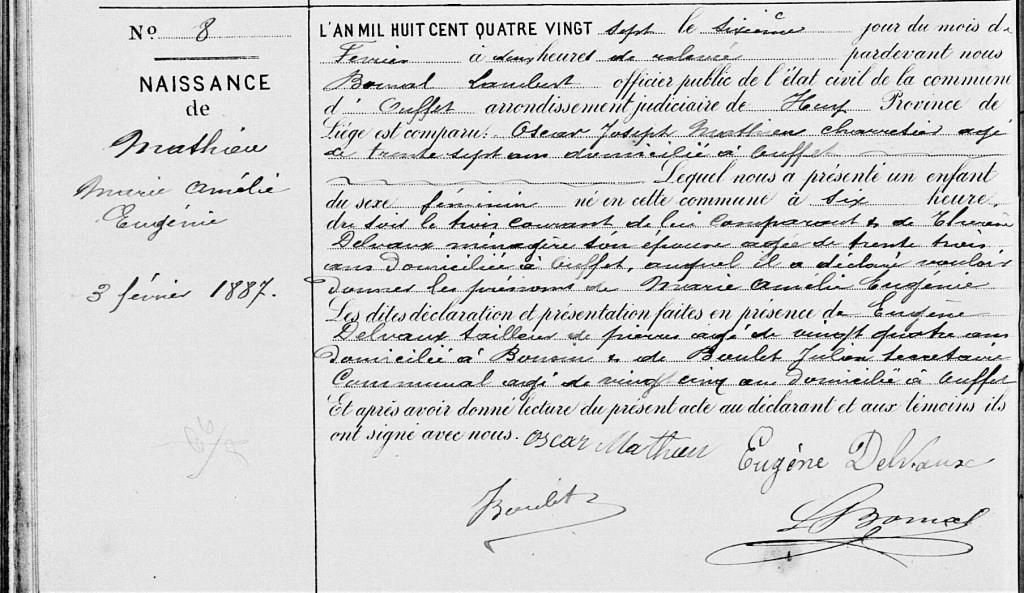 No 8
NAISSANCE
de
Mathieu
Marie Amélie
Eugénie
3 février 1887.
L'AN MIL HUIT CENT QUATRE VINGT sept le sixième jour du mois de
Février à deux heures de relevée pardevant nous
Bomal Lambert officier public de l'état civil de la commune
d' Ouffet arrondissement judiciaire de Huy Province de
Liège est comparu: Oscar Joseph Mathieu charretier agé
de trente sept ans domicilié à Ouffet
Lequel nous a présenté un enfant
du sexe féminin né en cette commune à six heure,
du soir le trois courant de lui comparant & de
Delvaux ménagère son épouse agée de trente trois
ans domiciliée à Ouffet, auquel il a déclaré vouloir
donner les prénoms de Marie Amélie Eugénie
Les dites déclaration et présentation faites en présence de Eugène
Delvaux tailleur de pierres agé de vingt quatre ans
domicilié à & de Boulet Julien secrétaire
Communal agé de vingt cinq ans domicilié à Ouffet
Et après avoir donné lecture du présent acte au déclarant et aux témoins ils
ont signé avec nous. Oscar Mathieu Eugène Delvaux
Boulet
L Bomal